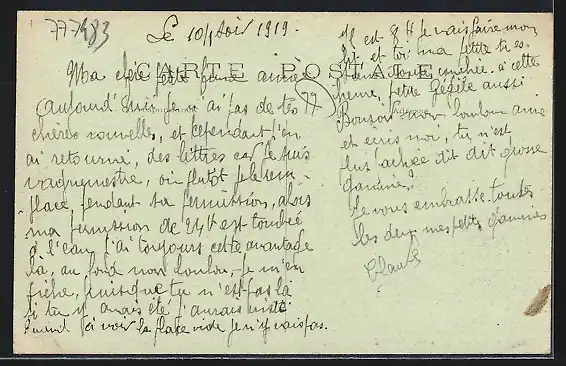 777483
Le 10/1 Soir 1919.
CARTE POSTALE
Ma chère petite femme aimée
Aujourd'hui je n'ai pas de tes
chères nouvelles, et cependant j'en
ai retourné, des lettres car je suis
vaguemestre, où plutôt je le rem-
place, pendant sa permission, alors
ma permission de 24h est tombée
à l'eau, j'ai toujours cette avantage
là, au fond mon loulou, je m'en
fiche, puisque tu n'est pas là
si tu y avais été j'aurais
Quand à voir la place vide je n'y vais pas.
Il est 8 H je vais faire mon
lit et toi ma petite tu es
sans doute couchée à cette
heure, petite aussi
Bonsoir mon loulou aimé
et écris moi, tu n'est
plus fachée dit dit grosse
gamine?
Je vous embrasse toutes
les deux mes petites gamines